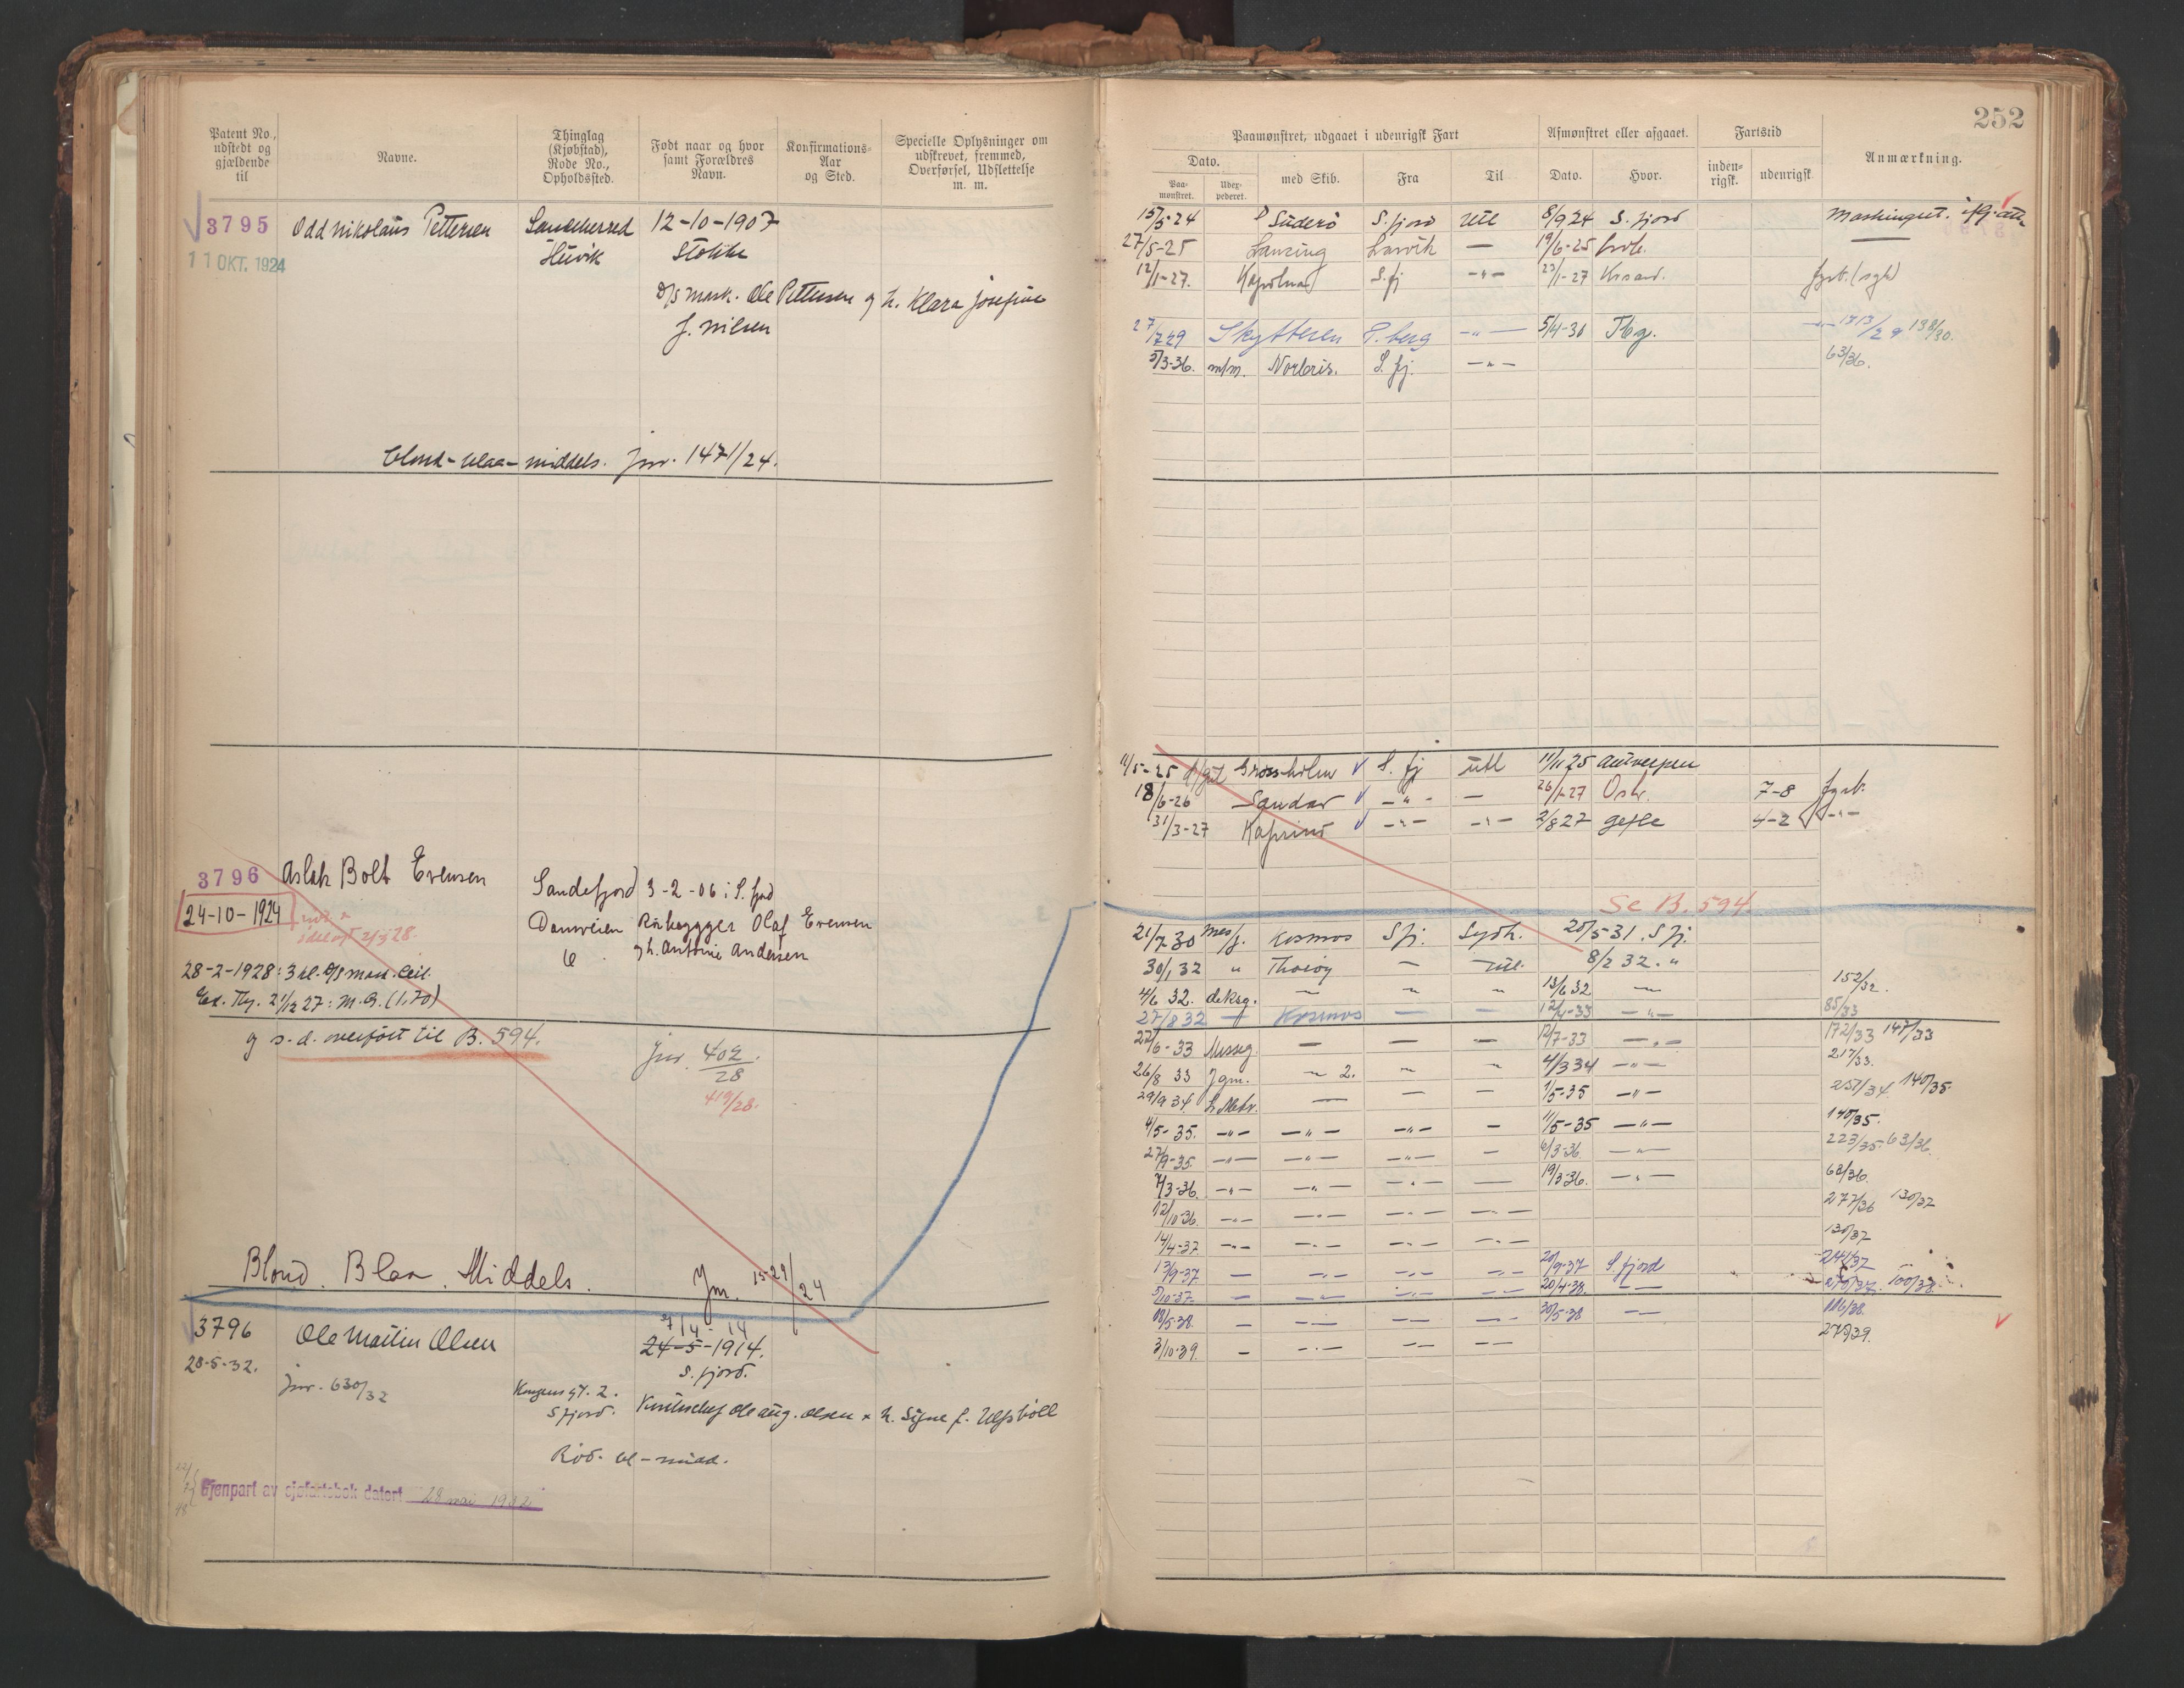 252
Patent No., udstedt og gjældende til
Navne.
Thinglag (Kjøbstad), Rode No., Opholdssted.
Født naar og hvor samt Forældres Navn.
Konfirmations-Aar og Sted.
Specielle Oplysninger om udskrevet, fremmed, Overførsel, Udslettelse m. m.
Paamønstret, udgaaet i udenrigsk Fart
Afmønstret eller afgaaet.
Fartstid
Anmærkning.
Dato.
Paa-mønstret.
Udex-pederet.
med Skib.
Fra
Til
Dato.
Hvor.
inden-rigsk.
udenrigsk
3795 Odd Nikolaus Pettersen Sandeherred 12-10-1907
11 OKT. 1924 Huvik Stokke
D/S mask. Ole Pettersen og h. Klara Josefine
f. Nilsen
blond-blaa-middels. Jnr. 1471/24.
15/5 24 Süderö S. fjord Utl 8/9 24 S. fjord
27/5-25 Lansing Larvik — 19/6-25
12/1-27. S. fj -"- 27/1-27 Krsand. fyrb.
27/7 29 Skytteren T. berg -"- 5/4-30 Tbg. 138/30.
5/3-36. m/m. Norbris. S. fj. -"- 63/36.
3796 Aslak Bolt Evensen Sandefjord 3-2-06 i S. fjord
24-10-1924 Damveien Rørlegger Olaf Evensen
6 og h. Antonie Andersen
28-2-1928: 3 kl.
og s.d. overført til B. 594.
Jnr. 402/28
419/28.
Blond. Blaa. Middels. Jnr. 1529/24
11/5-25 S. fj utl 11/11 25 Antwerpen
18/6-26 Sandar -"- — 26/1-27 Osk. 7-8 fyrb.
31/3-27 Kaprino -"- -"- 2/8 27 Gefle 4-2 -"-
Se B. 594
3796 Ole Martin Olsen 24-5-1914.
28-5-32. S. fjord.
Jnr. 630/32 Kongens gt. 2.
S fjord. Ole Aug. Olsen & h. Signe f.
Rød. bl-midd.
Gjenpart av sjøfartsbok datert 28 mai 1942
21/7-30 Kosmos S fj. Sydh. 20/5-31. S fj.
30/1 32 " Thorøy — utl. 8/2 32. "
4/6 32. deksg. — " " 13/6 32 — 152/32.
27/8 32 — Kosmos — — 12/4-33 -"- 85/33
22/6-33 Messeg. — — — 12/7-33 -"- 172/33 147/33
26/8 33 Jgm. — 2. " " 4/3 34 -"- 217/33.
29/9 34. — — — 1/5-35 -"- 257/34. 140/35.
4/5-35. -"- -"- -"- — 11/5-35 -"- 140/35.
27/9-35. -"- -"- -"- — 6/3-36. -"- 223/35. 63/36.
7/3-36. -"- -"- -"- — 19/3-36. -"- 68/36.
12/10-36. -"- -"- -"- -"- 277/36 130/37
14/4-37. -"- -"- -"- -"- 130/37
13/9-37 — -"- -"- -"- 20/9-37 S. fjord 241/37
5/10-37. — -"- -"- -"- 20/4-38. — 270/37. 100/38.
10/5-38. — -"- -"- -"- 30/5-38 — 116/38.
3/10-39. — -"- — — 279/39.